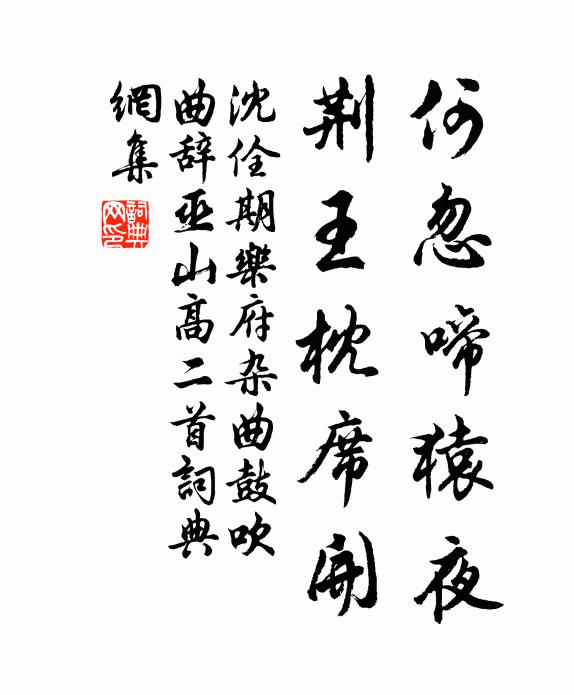 何忽啼猿夜
荆王枕席開
沈佺期樂府杂曲鼓吹
曲辞巫山高二首詞典
網集
詞典
网印